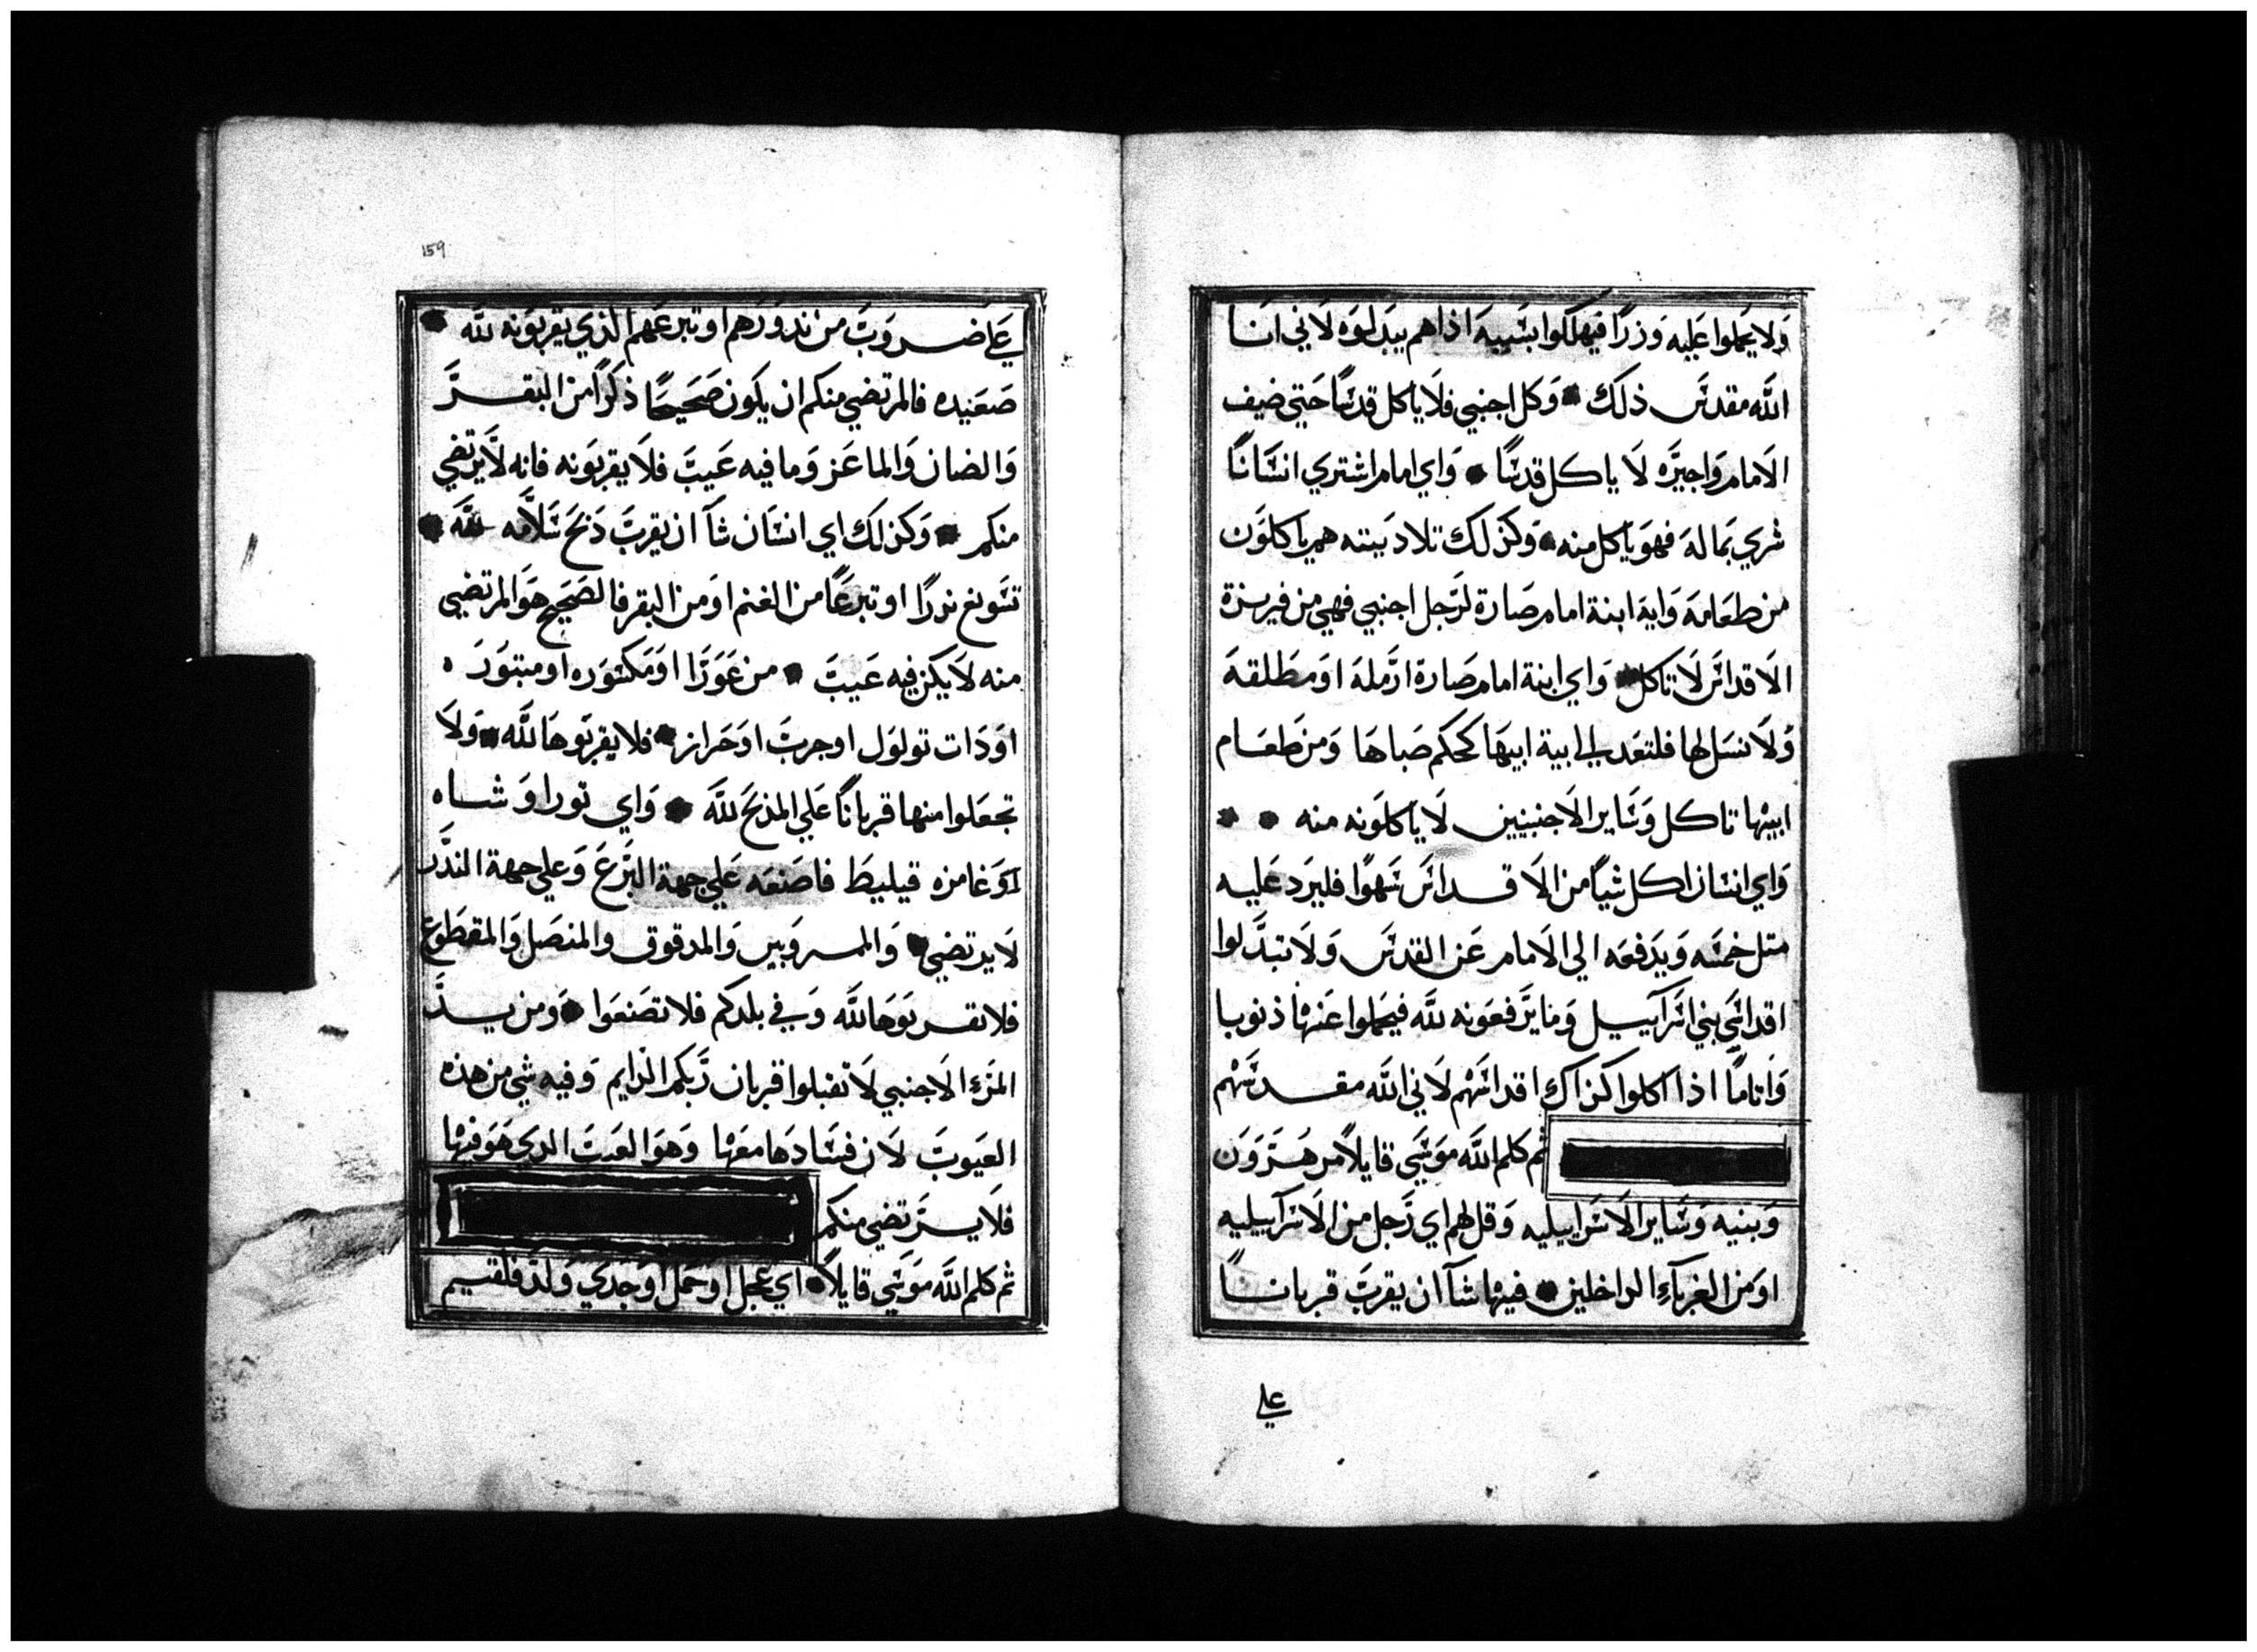 ولا يحملوا عليه وزرًا فيهلكوا بسببه اذا هم يبدلوه لاني انا
الله مقدس ذلك • وكل اجنبي فلا ياكل قدسًا حتي ضيف
الامام واجيره لا ياكل قدسًا • واي امام اشتري انسانًا
شري بماله فهو ياكل منه • وكذلك تلاد بيته هم ياكلون
من طعامه واية ابنة امام صارة لرجل اجنبي فهي من فريزة
الاقداس لا تاكل • واي ابنة امام صارة ارمله او مطلقه
ولا نسل لها فلتعد الي ابية ابيها كحكم صباها ومن طعام
ابيها تاكل وساير الاجنبيين لا ياكلونه منه • •
واي انسان اكل شيًا من الاقداس سهوًا فليرد عليه
متل خمسه ويدفعه الي الامام عن القدس ولا تبدلوا
اقداس بني اسراييل وما يرفعونه لله فيحملوا عنها ذنوبا
واتامًا اذا اكلوا كذاك اقداسهم لاني الله مقدسهم
ثم كلم الله موسي قايلاً مر هرون
وبنيه وساير الاسراييليه وقل لهم اي رجل من الاسراييليه
او من الغرباء الداخلين • فيها شآ ان يقرب قربانًا
علي
159
علي ضروب من ندورهم او تبرعهم الذي يقربونه لله •
صعنيده فالمرتضي منكم ان يكون صحيحًا ذكرًا من البقر
والضان والماعز وما فيه عيب فلا يقربونه فانه لا يرتضي
منكم • وكذلك اي انسان شآ ان يقرب ذبح سلامه لله •
تسويغ نذرًا او تبرعًا من الغنم او من البقر فالصحيح هو المرتضي
منه لا يكن فيه عيب • من عورا او مكسوره او مبتوره
او دات تولول او جرب او حراز • فلا يقربوها لله • ولا
تجعلوا منها قربانًا علي المذبح لله • واي تورا و شاه
او غامزه قيليط فاصنعه علي جهة البرع وعلي جهة الندر
لا يرتضي • والمسروبين والمدقوق والمنصل والمقطوع
فلا تقربوها لله وفي بلدكم فلا تصنعوا • ومن يد
المرء الاجنبي لا تقبلوا قربان ربكم الدايم وفيه شي من هذه
العيوب لان فسادها معها وهو العيب الدي هو فيها
فلا يرتضي منكم
ثم كلم الله موسي قايلاً • اي عجل او حمل او جدي ولد فلقيم